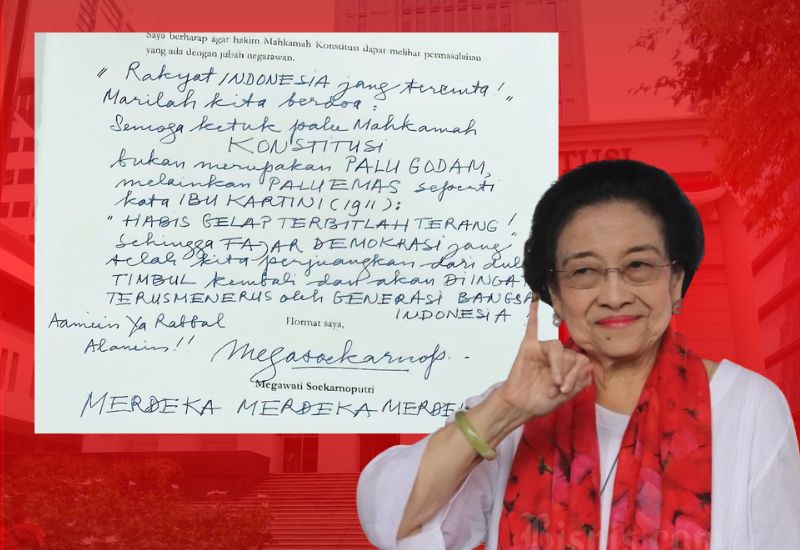 Saya berharap agar hakim Mahkamah Konstitusi dapat melihat permasalahan
yang ada dengan jubah negarawan.
" Rakyat INDONESIA jang tercinta!
Marilah kita berdoa : "
Semoga ketuk palu Mahkamah
KONSTITUSI
bukan merupakan PALU GODAM,
melainkan PALU EMAS seperti
kata IBU KARTINI (1911):
" HABIS GELAP TERBITLAH TERANG !
Sehingga FAJAR DEMOKRASI jang "
telah kita perjuangkan dari dulu
TIMBUL kembali dan akan DIINGA
TERUSMENERUS oleh GENERASI BANGSA
INDONESIA !
Aamiin Ya Rabbal
Alamiin !!
Hormat saya,
Megawati Soekarnoputri
MERDEKA MERDEKA MERDE
TUSI
Bisnis.com